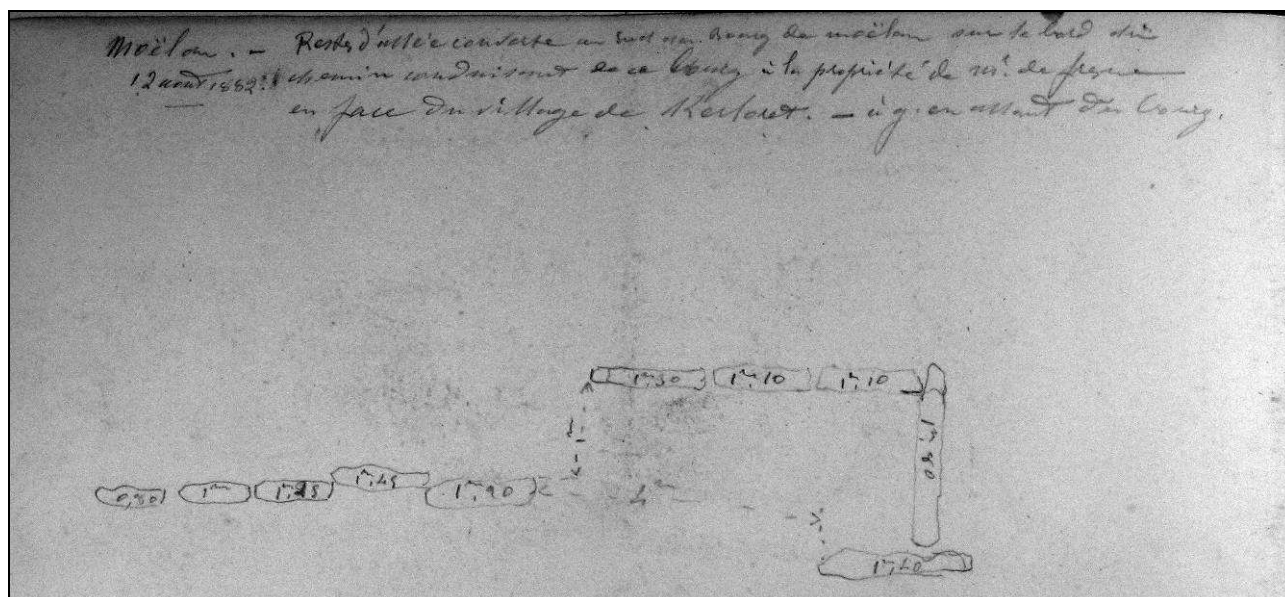 Moëlan. - Restes d'allée couverte au sud du bourg de moëlan sur le bord du
12 août 1882. chemin conduisant de ce bourg à la propriété de Mr. de
en face du village de - à g. en allant du bourg.
1m,50 1m,10 1m,10
1m,80
0,80 1m 1m,25 1m,45 1m,90 4m
1m,40